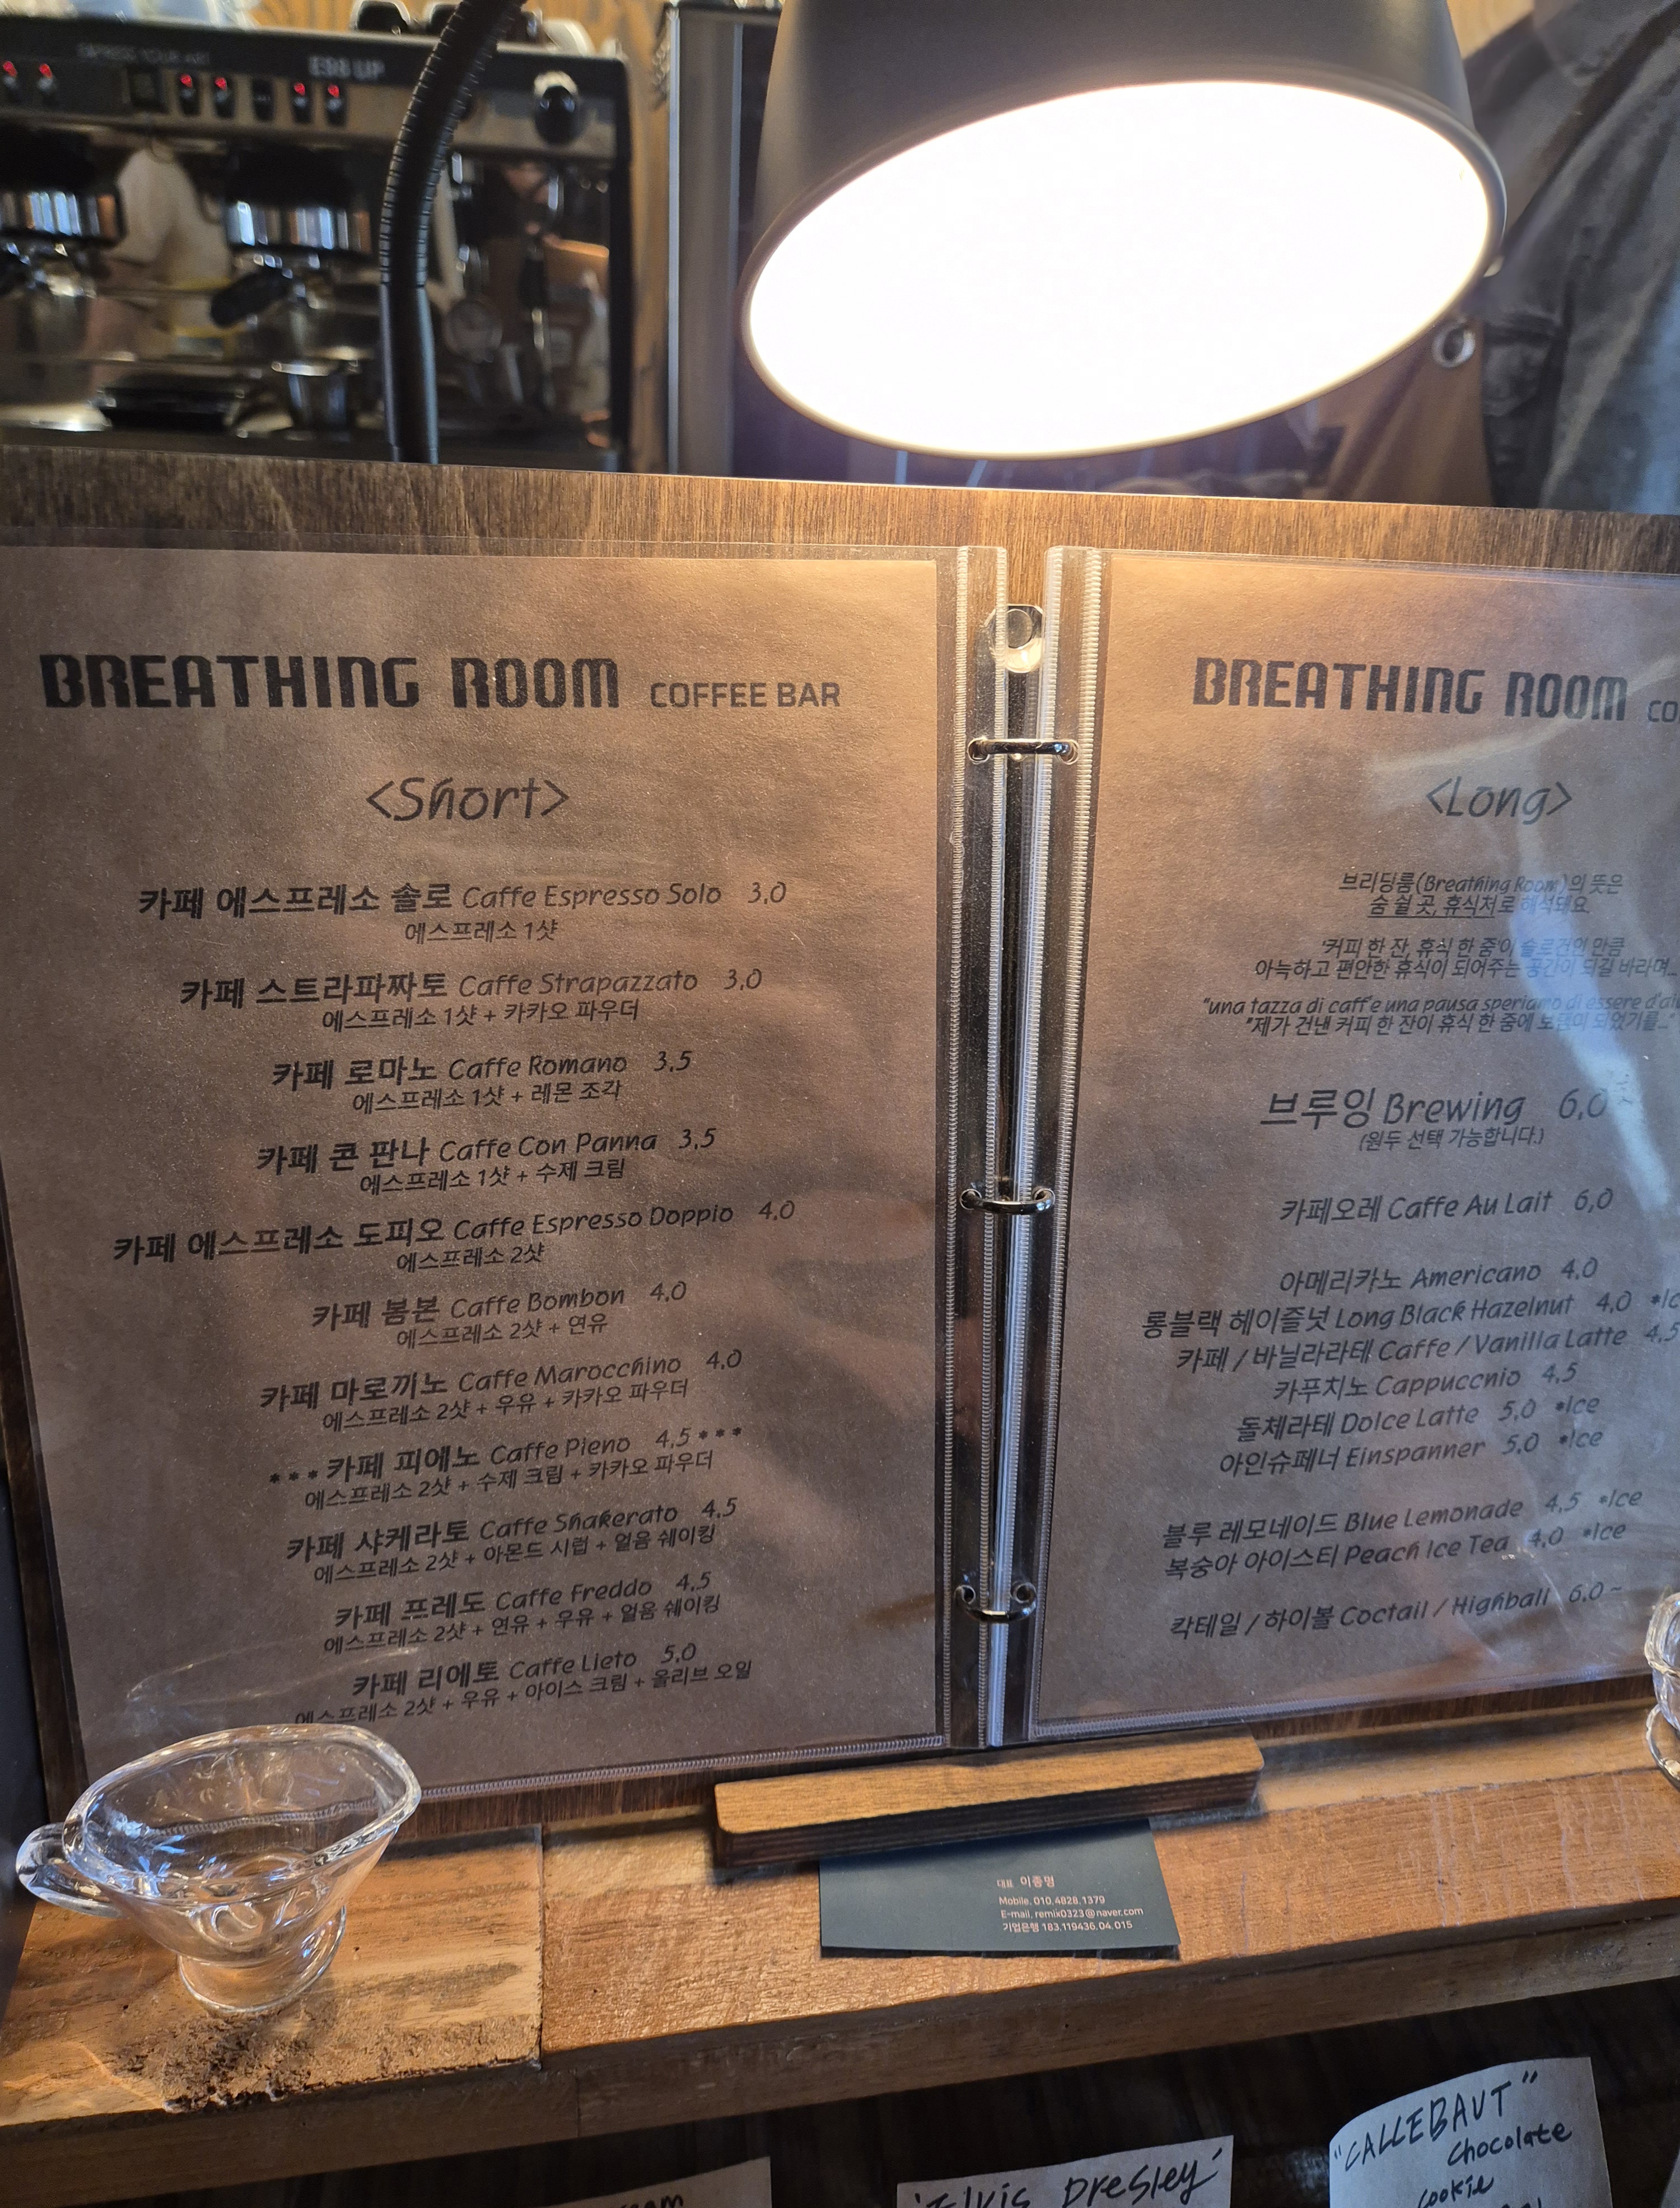 EXPRESS YOUR ART
E98 UP
BREATHING ROOM COFFEE BAR
<Short>
카페 에스프레소 솔로 Caffe Espresso Solo 3,0
에스프레소 1샷
카페 스트라파짜토 Caffe Strapazzato 3,0
에스프레소 1샷 + 카카오 파우더
카페 로마노 Caffe Romano 3,5
에스프레소 1샷 + 레몬 조각
카페 콘 판나 Caffe Con Panna 3,5
에스프레소 1샷 + 수제 크림
카페 에스프레소 도피오 Caffe Espresso Doppio 4,0
에스프레소 2샷
카페 봄본 Caffe Bombon 4,0
에스프레소 2샷 + 연유
카페 마로끼노 Caffe Marocchino 4,0
에스프레소 2샷 + 우유 + 카카오 파우더
***카페 피에노 Caffe Pieno 4,5 ***
에스프레소 2샷 + 수제 크림 + 카카오 파우더
카페 샤케라토 Caffe Shakerato 4,5
에스프레소 2샷 + 아몬드 시럽 + 얼음 쉐이킹
카페 프레도 Caffe Freddo 4,5
에스프레소 2샷 + 연유 + 우유 + 얼음 쉐이킹
카페 리에토 Caffe Lieto 5,0
에스프레소 2샷 + 우유 + 아이스 크림 + 올리브 오일
BREATHING ROOM CO
<Long>
브리딩룸(Breathing Room)의 뜻은
숨 쉴 곳, 휴식처로 해석돼요.
'커피 한 잔, 휴식 한 줌'이 슬로건인 만큼
아늑하고 편안한 휴식이 되어주는 공간이 되길 바라며,
"una tazza di caff'e una pausa speriamo di essere d'ai
"제가 건낸 커피 한 잔이 휴식 한 줌에 보탬이 되었기를..."
브루잉 Brewing 6,0
(원두 선택 가능합니다.)
카페오레 Caffe Au Lait 6,0
아메리카노 Americano 4,0
롱블랙 헤이즐넛 Long Black Hazelnut 4,0 *Ic
카페 / 바닐라라테 Caffe / Vanilla Latte 4,5
카푸치노 Cappuccnio 4,5
돌체라테 Dolce Latte 5,0 *Ice
아인슈페너 Einspanner 5,0 *Ice
블루 레모네이드 Blue Lemonade 4,5 *Ice
복숭아 아이스티 Peach Ice Tea 4,0 *Ice
칵테일 / 하이볼 Coctail / Highball 6,0 ~
대표 이종명
Mobile. 010.4828.1379
E-mail. remix0323@naver.com
기업은행 183.119436.04.015
'Elvis Presley'
"CALLEBAUT"
Chocolate
Cookie